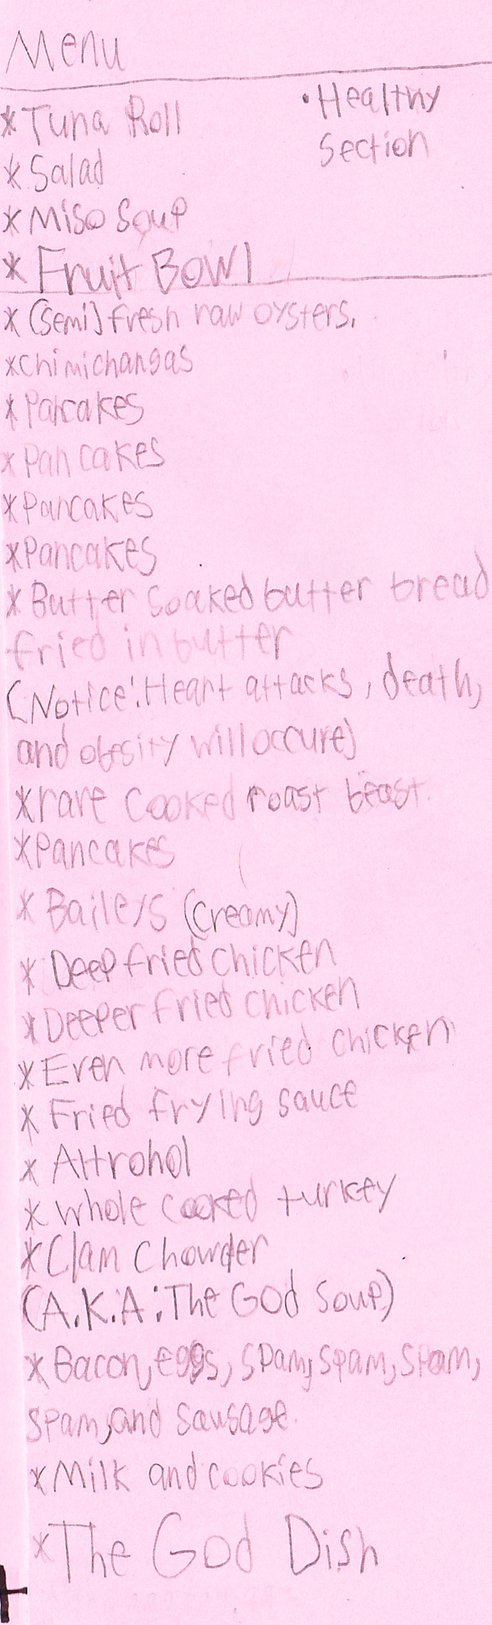 Menu
*Tuna Roll
•Healthy
Section
*Salad
*Miso Soup
*Fruit Bowl
*(Semi) fresh raw oysters.
*chimichangas
*Pancakes
*Pancakes
*Pancakes
*Pancakes
*Butter Soaked butter bread
fried in butter
(Notice: Heart attacks, death,
and obesity will occure)
*rare cooked roast beast.
*Pancakes
*Baileys (creamy)
*Deep fried chicken
*Deeper fried chicken
*Even more fried chicken
*Fried frying sauce
*Altrohol
*Whole cooked turkey
*Clam chowder
(A.K.A: The God Soup)
*Bacon, eggs, spam, spam, spam,
spam, and sausage.
*Milk and cookies
*The God Dish